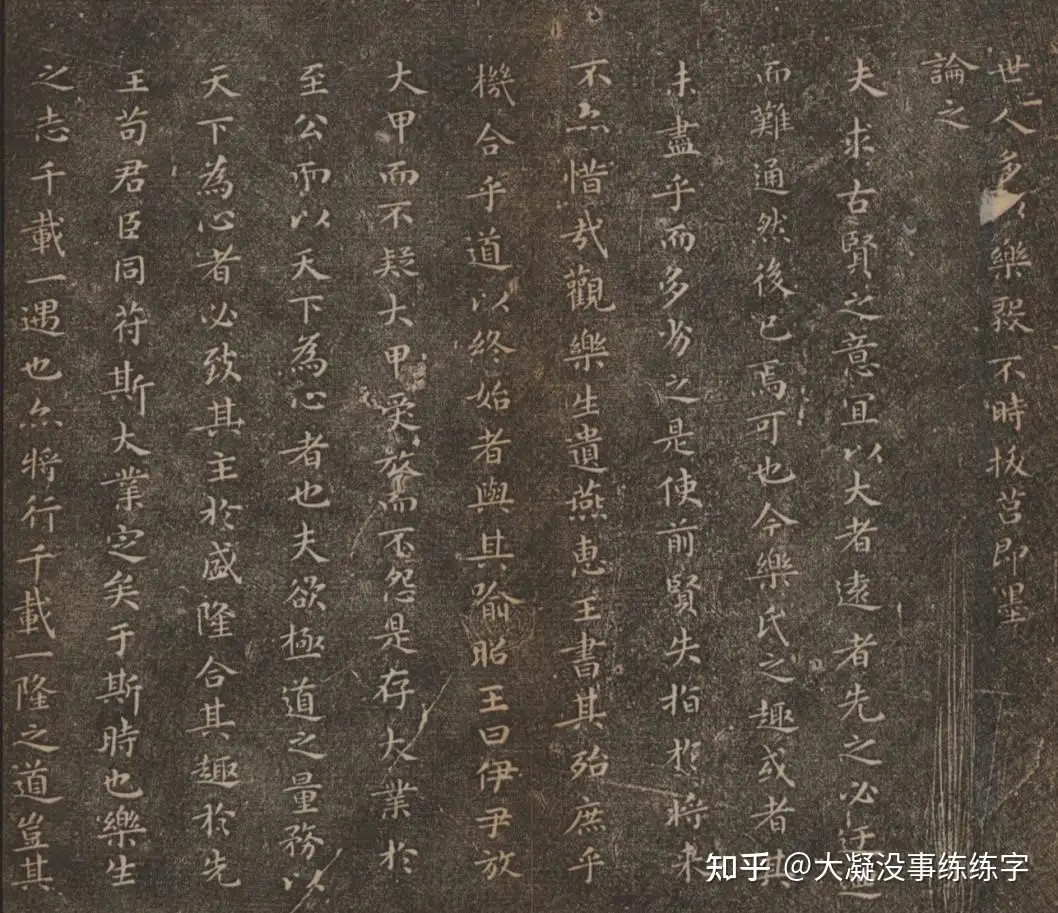 世人多以樂毅不時拔莒即墨
論之
夫求古賢之意宜以大者遠者先之必迂迴
而難通然後已焉可也今樂氏之趣或者其
未盡乎而多劣之是使前賢失指於將来
不亦惜哉觀樂生遺燕惠王書其殆庶乎
機合乎道以終始者與其喻昭王曰伊尹放
大甲而不疑大甲受放而不怨是存大業於
至公而以天下為心者也夫欲極道之量務以
天下為心者必致其主於盛隆合其趣於先
王苟君臣同符斯大業定矣于斯時也樂生
之志千載一遇也亦將行千載一隆之道豈其
知乎 @大凝没事练练字